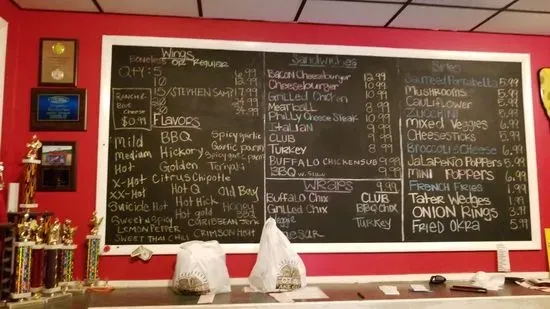 Wings
Boneless or Regular
QTY: 5 6.99
10
15/STEPHEN SAMP 17.99
RANCH &
Blue
Cheese
$0.99
FLAVORS
Mild BBQ Spicy garlic
Medium Hickory Garlic parm
Hot Golden Teriyaki Spicy garlic parm
X-Hot Citrus Chipotle
XX-Hot Hot Q Old Bay
Suicide Hot Hot Kick Honey
Hot gold
Sweet n Spicy CARIBBEAN JERK
LEMON PEPPER
SWEET THAI CHILI CRIMSON HEAT
Sandwiches
BACON Cheeseburger 12.99
Cheeseburger 10.99
Grilled Chicken 10.99
Meatball 8.99
Philly Cheese Steak 10.99
ITALIAN 9.99
CLUB 9.99
Turkey 8.99
BUFFALO CHICKEN SUB 9.99
BBQ W/Slaw 9.99
WRAPS 9.99
Buffalo Chix CLUB
Grilled Chix BBQ Chix
Veggie Turkey
Caesar
Sides
Sauteed Portabella 5.99
Mushrooms 5.99
Cauliflower 5.99
ZUCCHINI 5.99
Mixed Veggies 6.99
CHEESESTICKS 5.99
Broccoli Cheese 5.99
JALAPEÑO POPPERS 5.99
MINI POPPERS 6.99
FRENCH FRIES 1.99
Tater Wedges 1.99
ONION RINGS 3.99
FRIED OKRA 5.99